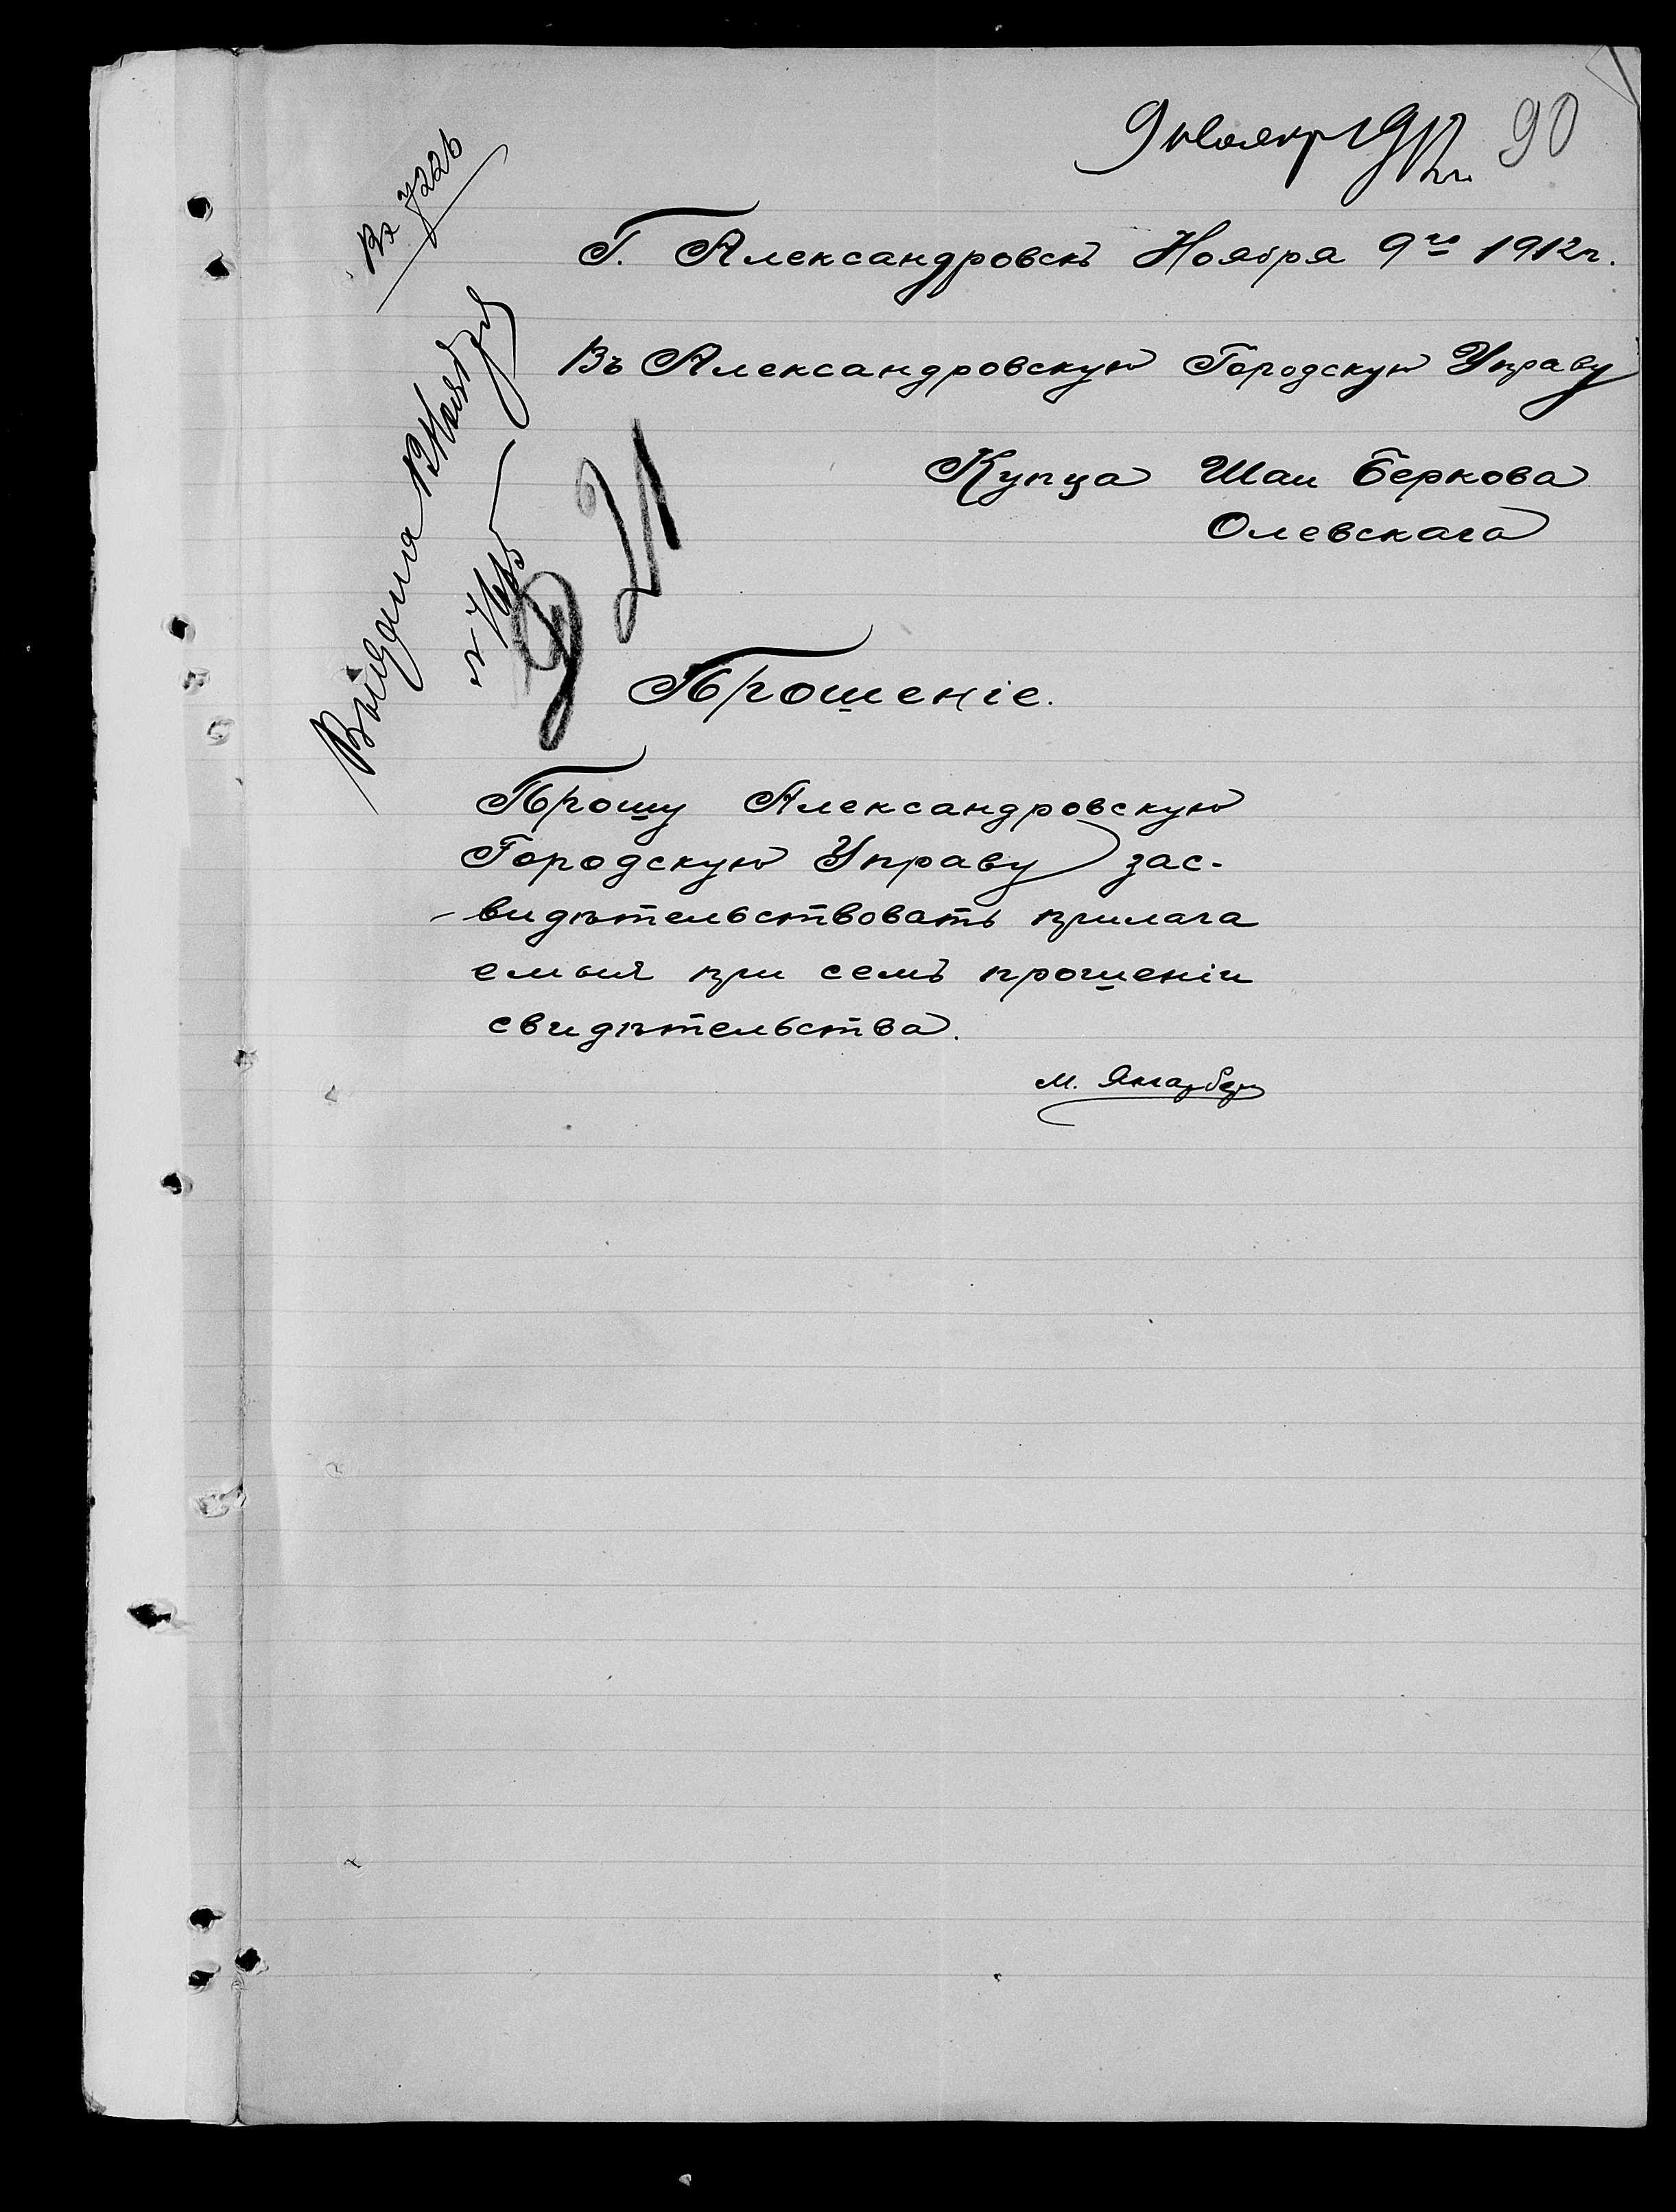 9 Ноябр 1912 г.
90
Вх 7226
Г. Александровскъ Ноября 9го 1912 г.
Въ Александровскую Городскую Управу
Купца Шаи Беркова
Олевскаго
21
Прошеніе.
Прошу Александровскую
Городскую Управу зас-
-видѣтельствовать прилага
емыя при семъ прошеніи
свидѣтельства.